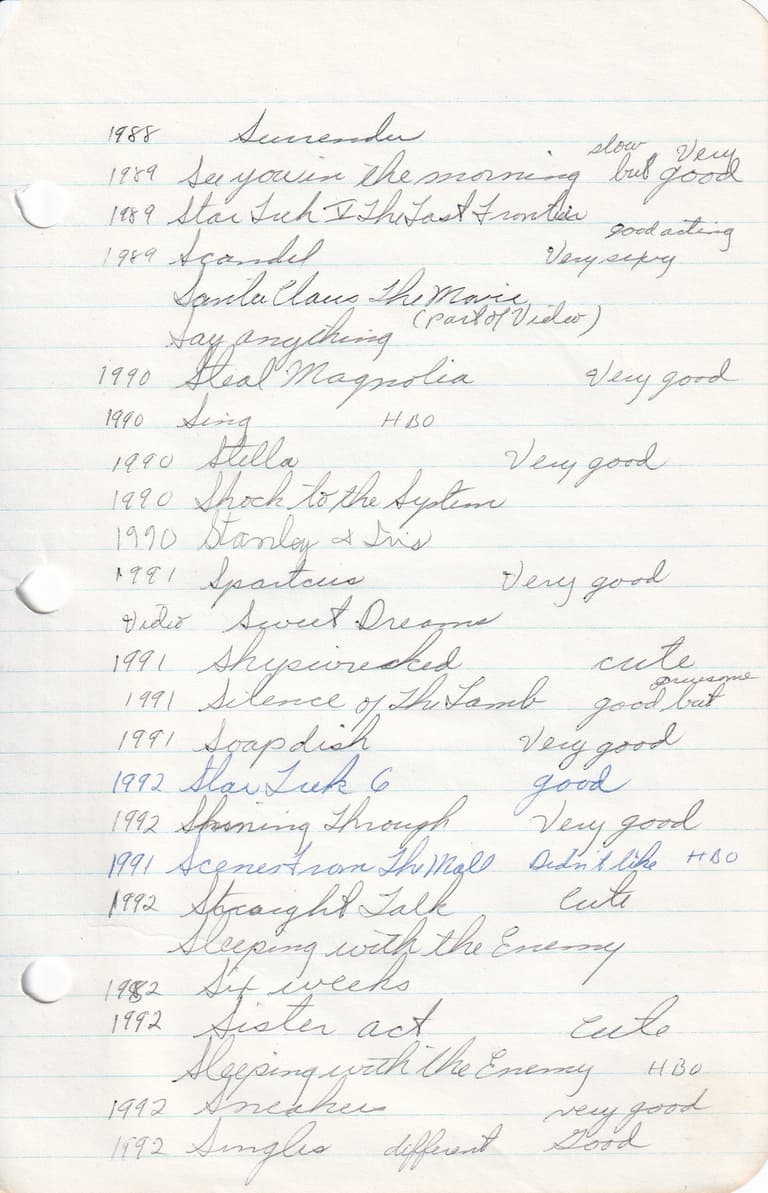 1988 Surrender
1989 See you in the morning slow but Very good
1989 Star Trek V The Last Frontier
1989 Scandel Very sexy good acting
Santa Claus The Movie
Say anything (part of Video)
1990 Steal Magnolia Very good
1990 Sing HBO
1990 Stella Very good
1990 Shock to the System
1990 Stanley & Iris
1991 Spartcus Very good
Video Sweet Dreams
1991 Shipwrecked cute
1991 Silence of Th Lamb good but gruesome
1991 Soapdish Very good
1992 Star Trek 6 good
1992 Shining Through Very good
1991 Scenes From The Mall Didn't like HBO
1992 Straight Talk Cute
Sleeping with the Enemy
1982 Six weeks
1992 Sister act Cute
Sleeping with the Enemy HBO
1992 Sneakers very good
1992 Singles different Good